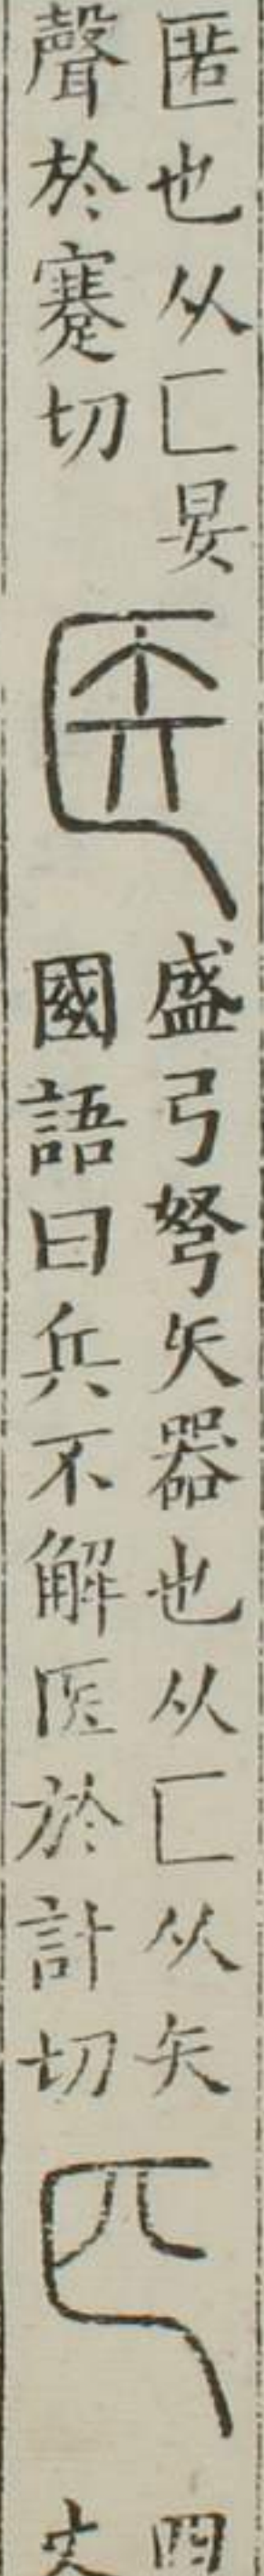 匿也从匸妟
聲於蹇切
医
盛弓弩矢器也从匸从矢
國語曰兵不解医於計切
匹
四